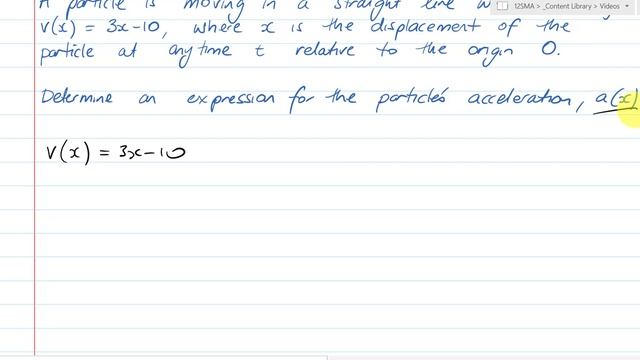 12SMA > _Content Library > Videos
A particle is moving in a straight line
v(x) = 3x-10, where x is the displacement of the
particle at any time t relative to the origin O.
Determine an expression for the particle's acceleration, a(x)
v(x) = 3x-10